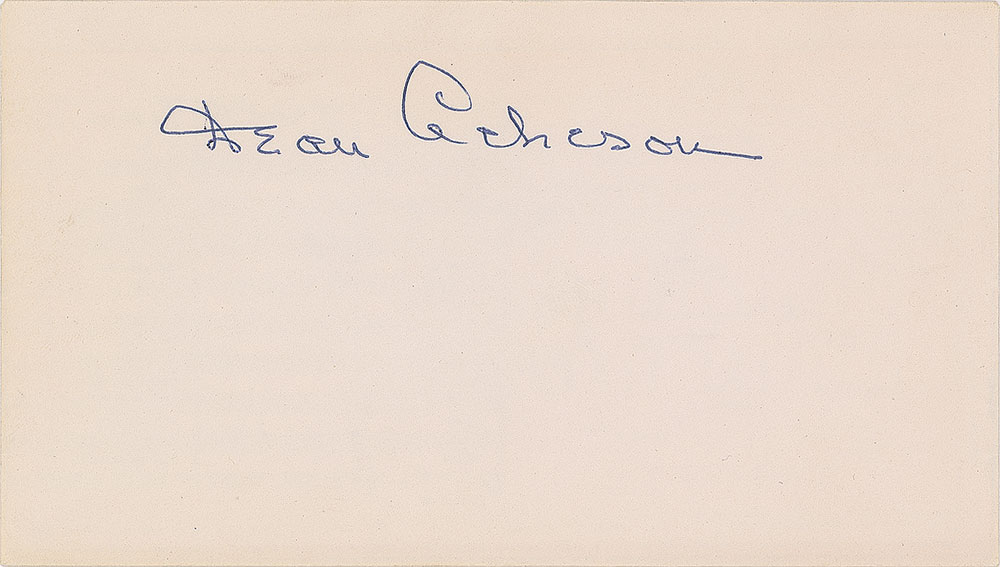 Dean Acheson